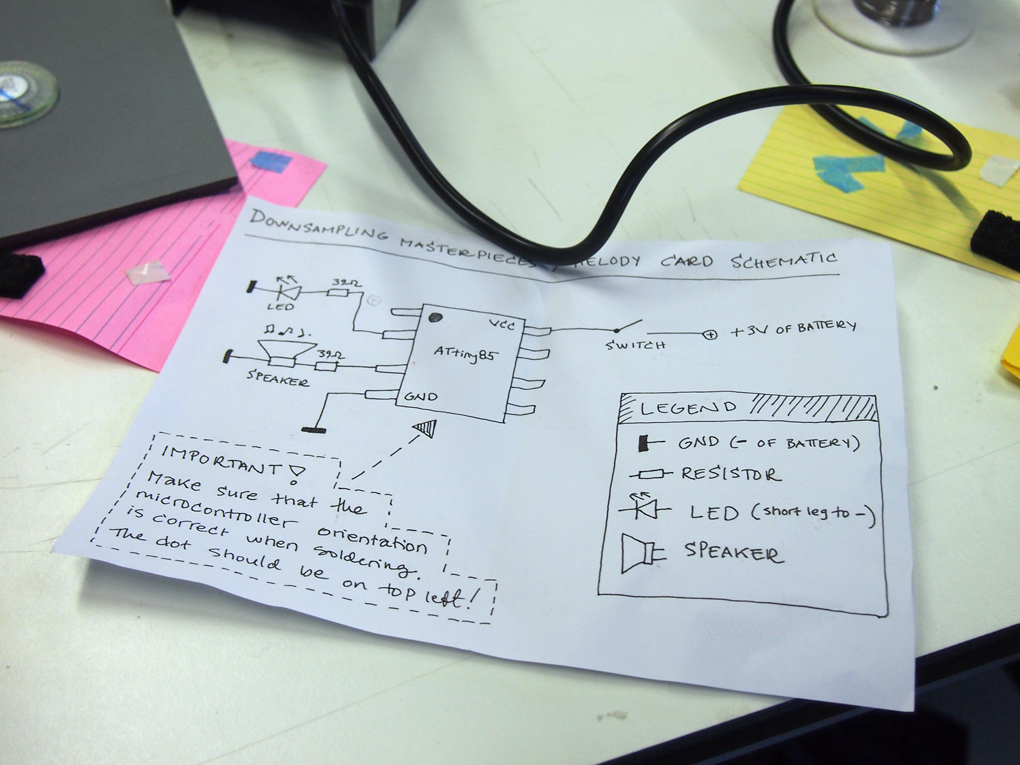 DOWNSAMPLING MASTERPIECES / MELODY CARD SCHEMATIC
39Ω
LED
VCC
ATtiny85
SWITCH
+3V OF BATTERY
39Ω
SPEAKER
GND
LEGEND
GND (- OF BATTERY)
RESISTOR
LED (short leg to -)
SPEAKER
IMPORTANT!
Make sure that the
microcontroller orientation
is correct when soldering.
The dot should be on top left!